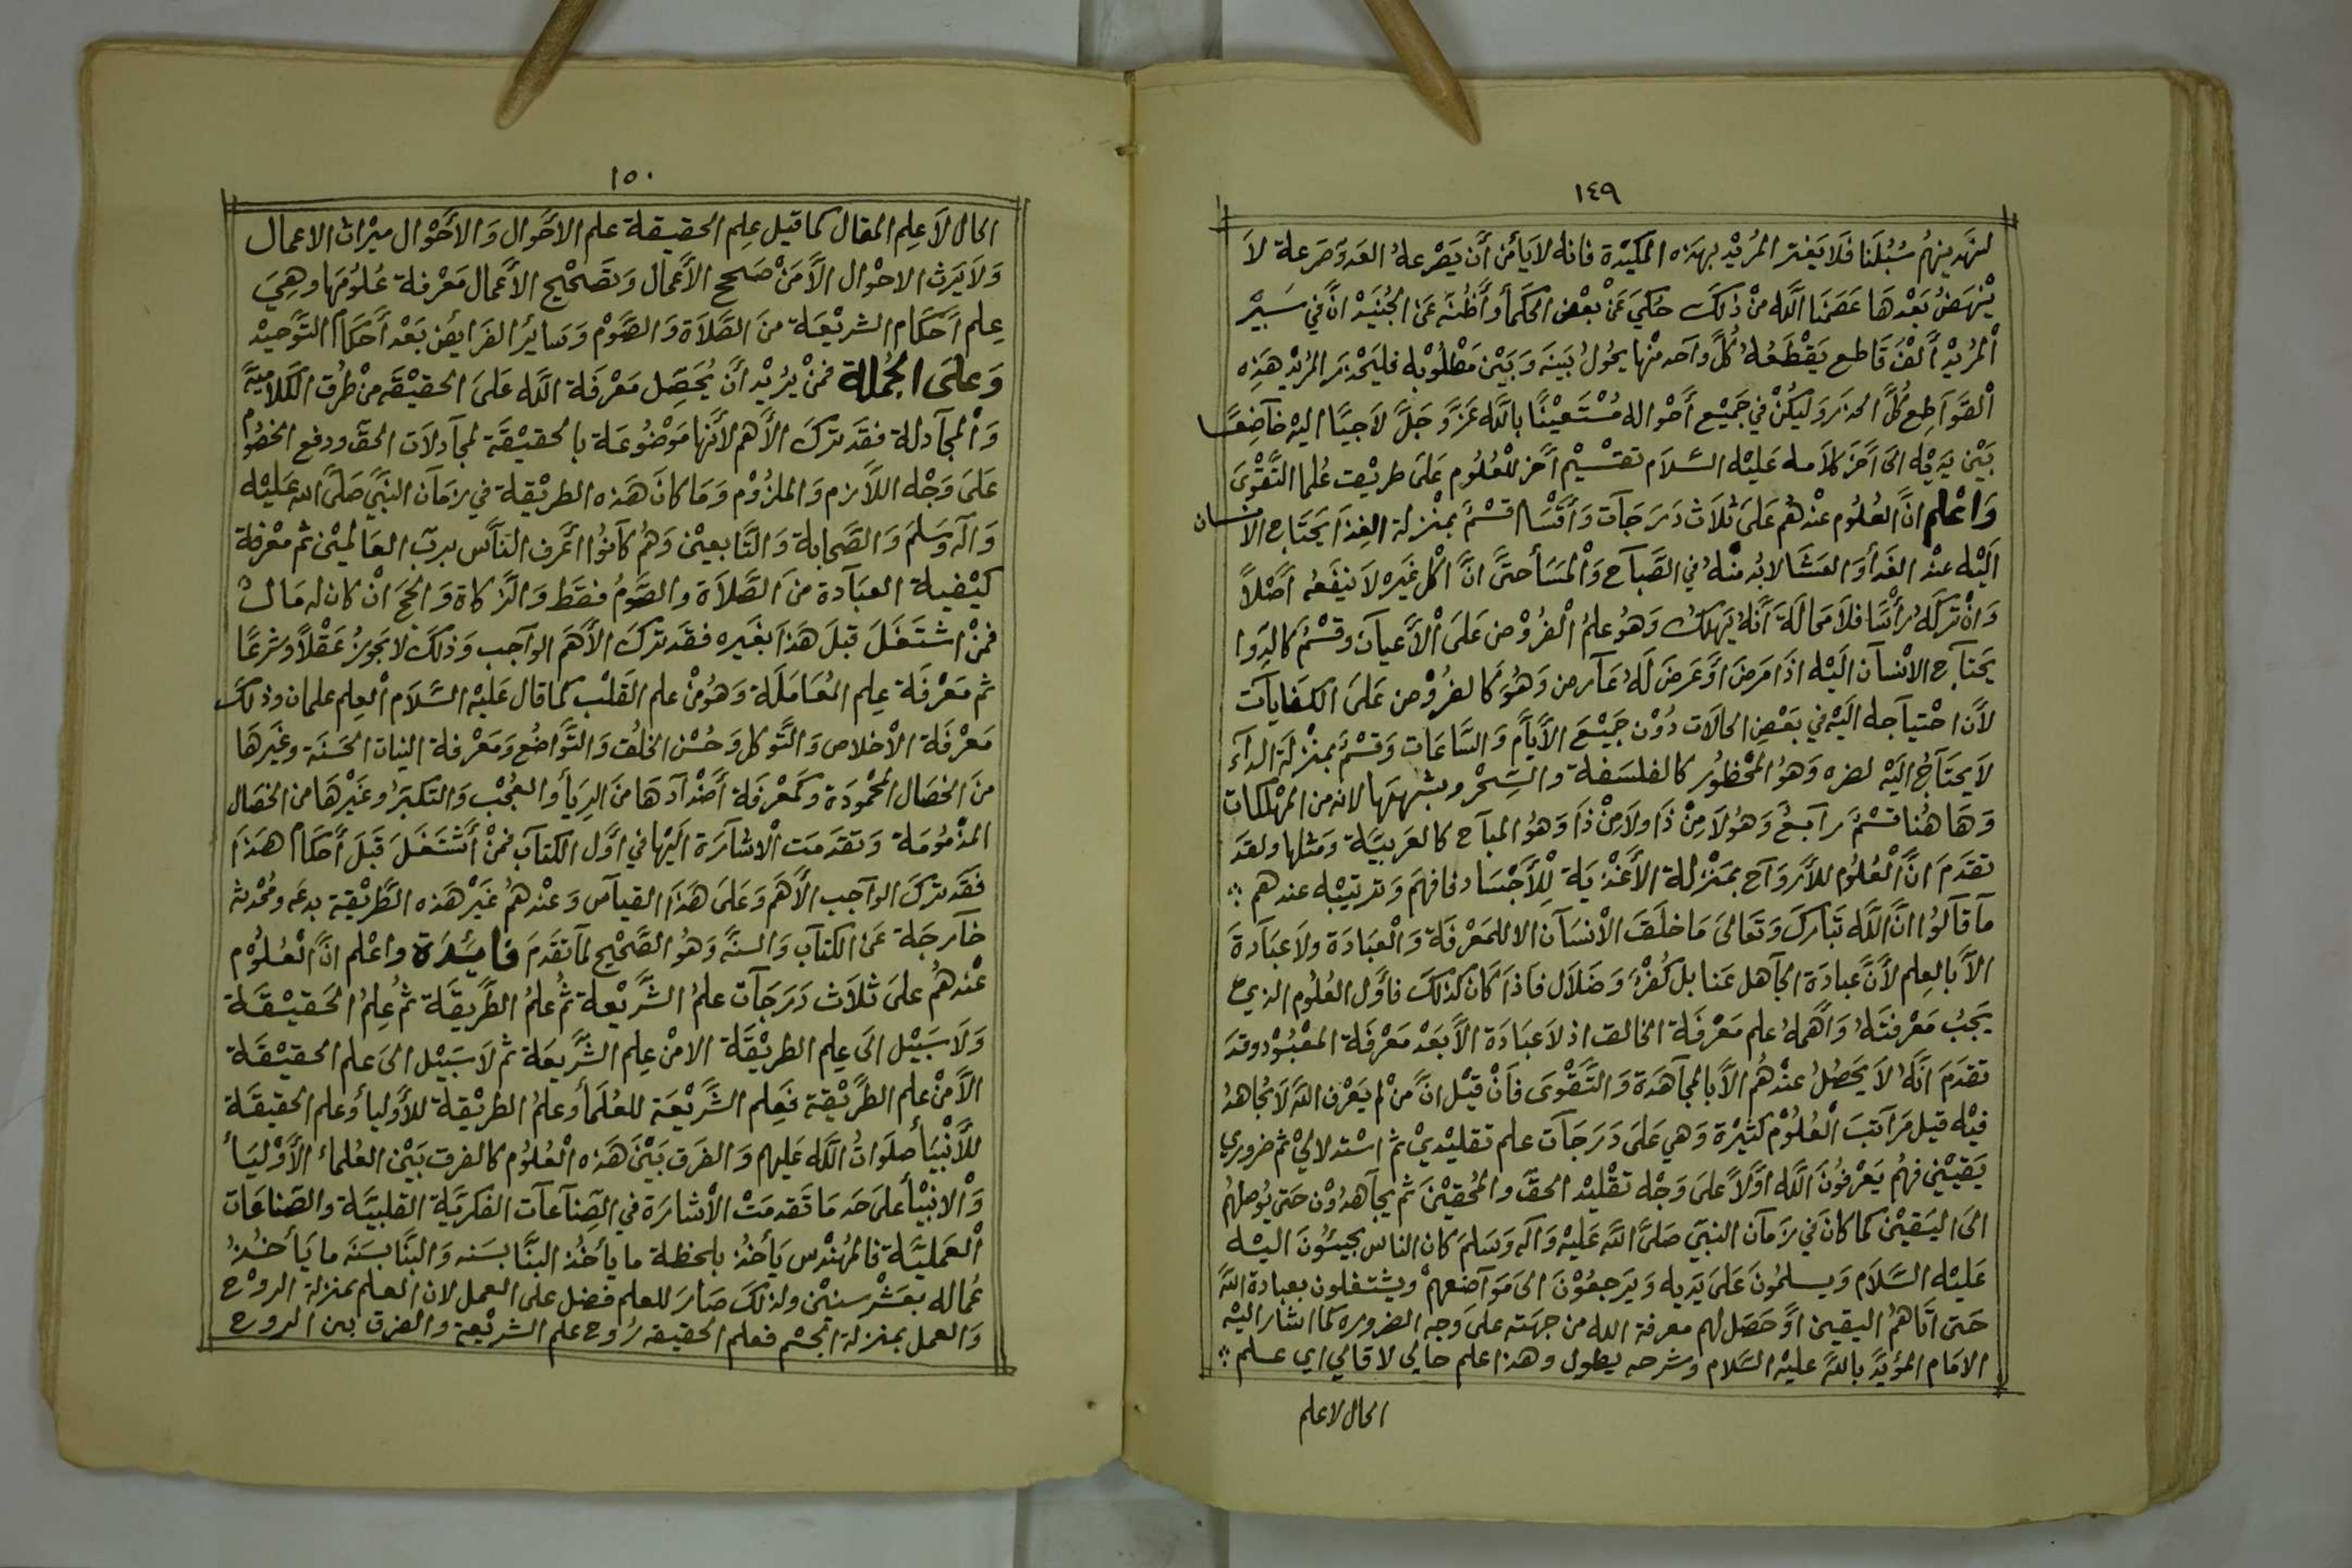 ١٤٩
لنهدينهم سُبُلَنا فَلا يَغتر المُريْد بهَذه المكيْدة فانه لا يَأمن أن يَصْرعهُ العَدو صَرعة لَا
يَنْهَضُ بَعْدهَا عَصَمَنا الله منْ ذلكَ حُكيَ عَنْ بعْض الحكمأ وأظُنّه عَن الجُنَيْد انّ في سَيْر
اْلمُريْد ألفَ قاطع يَقْطَعُهُ كُلّ وآحد منْها يحُولُ بَينَه وَبَيْن مَطْلُوبْه فليَحْذَر المُريْد هَذِه
اْلقَوآطِع كُلّ الحذر وَليكُنْ في جَميْع أحْواله مُسْتَعيْنًا بالله عَزّ وَجَلّ لاَجيًا اليْه خآضِعًا
بَيْن يَديْه الى آخر كلاَمه عَليْه السّلاَم تقسْيْم آخَر للْعُلُوم عَلى طريْقت عُلما التّقْوَى
وَاعْلم انّ العُلُوم عنْدهُم عَلى ثلاَث دَرَجَآت وَأقْسَام قسْمٌ بمنْزلة الغِذَا يَحتَاج الانسان
اَليْه عنْد الغَدأ وَالعَشَا لا بُد منْهُ في الصّبآح وَاْلمسَأ حتّى انّ اكْل غَيره لاَ ينفَعُه أصْلاً
وَانْ تركَهُ رأسًا فلاَ مَحالَة أنّهُ يَهلكُ وَهُو علمُ الْفرُوْض عَلى اْلأعيآن وقسْمٌ كالدوا
يَحتآج الانْسآن اَليْه اذَا مَرضَ اوْ عَرضَ لَهُ عَآرض وَهُوَ كالفرُوْض عَلى الكفايآت
لأن احْتيآجه اَليْه في بَعْض الحالاَت دُوْن جَميْعَ الأيامْ وَالسّاعَات وَقسْمٌ بمنْزلَة الدآء
لاَ يحتآجُ اَليْه لضره وَهُو المحْظُوْر كالفلسَفة والسِحْر وبشبههَا لانه من المهْلكات
وَهَا هُنا قسْمٌ رآبعٌ وَهُو لاَ مِنْ ذَا ولاَ مِنْ ذَا وَهُو المبآح كالعَربيّة وَمثلها ولقد
تقدَمَ انّ الْعُلُوم للأروَآح بمَنْزلة الأغْذيَة لْلأجْسَاد فافهَم وَترتيْبْه عندهم ∴
مآ قآلوُا انّ الله تَبارَكَ وَتعَالى مَا خَلَقَ الأنسَآن الا للمَعْرفَة وَالْعبَادَة ولاَ عبَآدةَ
الأ بالعِلم لأنّ عبادَة الجآهل عَنا بل كُفرٌ وَضَلاَل فاذَا كَان كذلكَ فأوّل العُلُوم الذي
يَجبُ مَعْرفتَهُ وَاَهمهُ علم مَعْرفَة الخالق اذ لاَ عبَادَة الأ بَعْد مَعْرفَة المعْبُوْد وقد
تقدَمَ انّهُ لاَ يَحصُلُ عنْدهُم الأ بالمجآهدَة وَالتّقْوَى فأن قيْل انّ مَنْ لم يَعْرف الله لاَ يُجَاهدُ
فيْه قيل مَرآتبَ الْعُلُوْم كَثيْرة وَهي عَلى دَرَجَآت علم تقليْديْ ثم اسْتدلاليْ ثم ضروري
يَقيْنْي فهُم يَعْرفُونَ الله اوّلاً على وَجْه تقْليْد الحقّ والمُحقيْنَ ثم يجآهدُوْن حَتى يُوصلهُم
الى اليَقيْن كما كانَ في زَمآن النبَي صَلىّ الله عَليْه وَآله وَسَلمَ كان الناس يجيئوُنَ اليْه
عَليْه السّلاَم وَيسلمُونَ عَلى يَديه وَيَرجعُوْنَ الى مَوآضعهمْ ويشتغلون بعبادة اللهّ
حَتى اتَاهمُ اليقين اوْ حَصَل لهم معرفة الله من جهَته على وَجه الضروره كما اشار اليْه
الامَام المؤيدّ باللهّ عليْه السّلام وشرحه يطول وهذا علم حالي لا قالي اي علم ∴
الحال لا علم
١٥٠
الحال لاَ علِم المقال كما قيل علِم الحقيقة علم الاحَوال وَالأحْوَال ميْراث الاعمال
وَلاَ يَرث الاحْوال الأ مَنْ صَحح الأعمال وَتصَحْيْح الأعمال مَعْرفة عُلوُمهَا وهِيَ
عِلم اَحكام الشريْعَة منَ الصّلاَة وَالصّوْم وَسَايرُ الفرَايضُ بَعْد أحكام التّوحيْد
وَعلَى الجُملة فمَنْ يُريْد أن يُحصِّل مَعْرفَة الله عَلى الحقيْقَه منْ طرُق الكلاميّة
وَاْلمجآدلة فقَد تركَ الأهم لأنّها مَوْضُوعَة بالحقيْقَة لمجآدلاَت الحقّ ودفع الخصُوم
عَلى وَجْه اللأزم وَالملزُوْم وَمَا كانَ هَذه الطريْقة في زمَآن النبَيّ صَلىّ الله عَليْه
وَآله وَسَلمَ وَالصّحابة وَالتّابعيْن وَهُم كآنُوا أعْرف النآس بربّ العَالميْن ثم معْرفة
كيْفية العبَآدة منَ الصّلاَة والصّومُ فقَط وَالزّكاة وَالحجَ انْ كان له مَالٌ
فمَنْ اشتَغَلَ قبلَ هَذا بغَيره فقَد تركَ الأهَم الوآجب وَذلكَ لا يَجوزُ عَقْلاً وشرعًا
ثم مَعْرفَة عِلم المُعَامَلَة وَهُو منْ علم القَلْب كما قال عَليْه السّلاَم اْلعِلم علمان وذلكَ
مَعْرفَة الأخلاص وَالتّوكل وَحُسْن الخلُق وَالتّواضُع وَمَعْرفة النيات الحَسَنَة وغَيرهَا
منَ الخصَال المحْمودَة وكَمَعْرفَة أضْدآدهَا منَ الرِيَأ والعُجْب وَالتكبَرُ وغَيْرهَا من الخصَال
المذمُومَة وَتقدَمت الاشآرَة اليْهَا في أوّل الكتآب فمَنْ أشتَغَلَ قَبلَ أحكام هَذَا
فقَد تركَ الوآجب الأهَم وَعَلى هَذَا القيآس وَعنْدهمُ غَيْر هَذه الطّريْقة بدعَه ومُحْدثة
خآرجَة عَن الكتآب وَالسنّة وَهُو الصّحيْح لمآ تقدَمَ فايئدَة واعْلم انّ الْعُلُوْم
عنْدهُم علىَ ثلاَث دَرَجَآت علمُ الشَّريْعة ثُم علمُ الطّريقَة ثُم عِلمُ الحَقيْقَة
وَلاَ سَبيْل الى عِلم الطريْقَة الا منْ عِلم الشّريعَة ثم لاَ سَبَيْل الىَ علم الحقيْقَة
الأ منْ علم الطّريْقة فَعِلم الشّريْعَة للعُلمأ وعلمُ الطريْقة للأوليأ وعلم الحقيقَة
للأنْبيَأ صلَوَاتُ الله عَليهم وَالفَرَق بَيْنَ هَذه الْعُلُوُم كالفرق بَيْن العُلماء الأوْليَأ
وَالانبيْأ على حَد مَا تَقدمَتْ الأشارَة في الصِّناعآت الفكريّة القلبيَّة والصّناعَات
اْلعَمليّة فالمُهنْدس يَأخذُ بلحظة ما يأخُذُ البنَّا بسَنه وَالبنَّا بسَنَه ما يَأخُذُ
عُماله بعَشْر سنيْن ولذلكَ صَارَ للعلم فضل على العمل لان العلم بمنزلة الروْح
وَالعمل بمنزلة الجسْم فعلم الحقيقه رُوح علم الشريْعة والفرق بين الروح